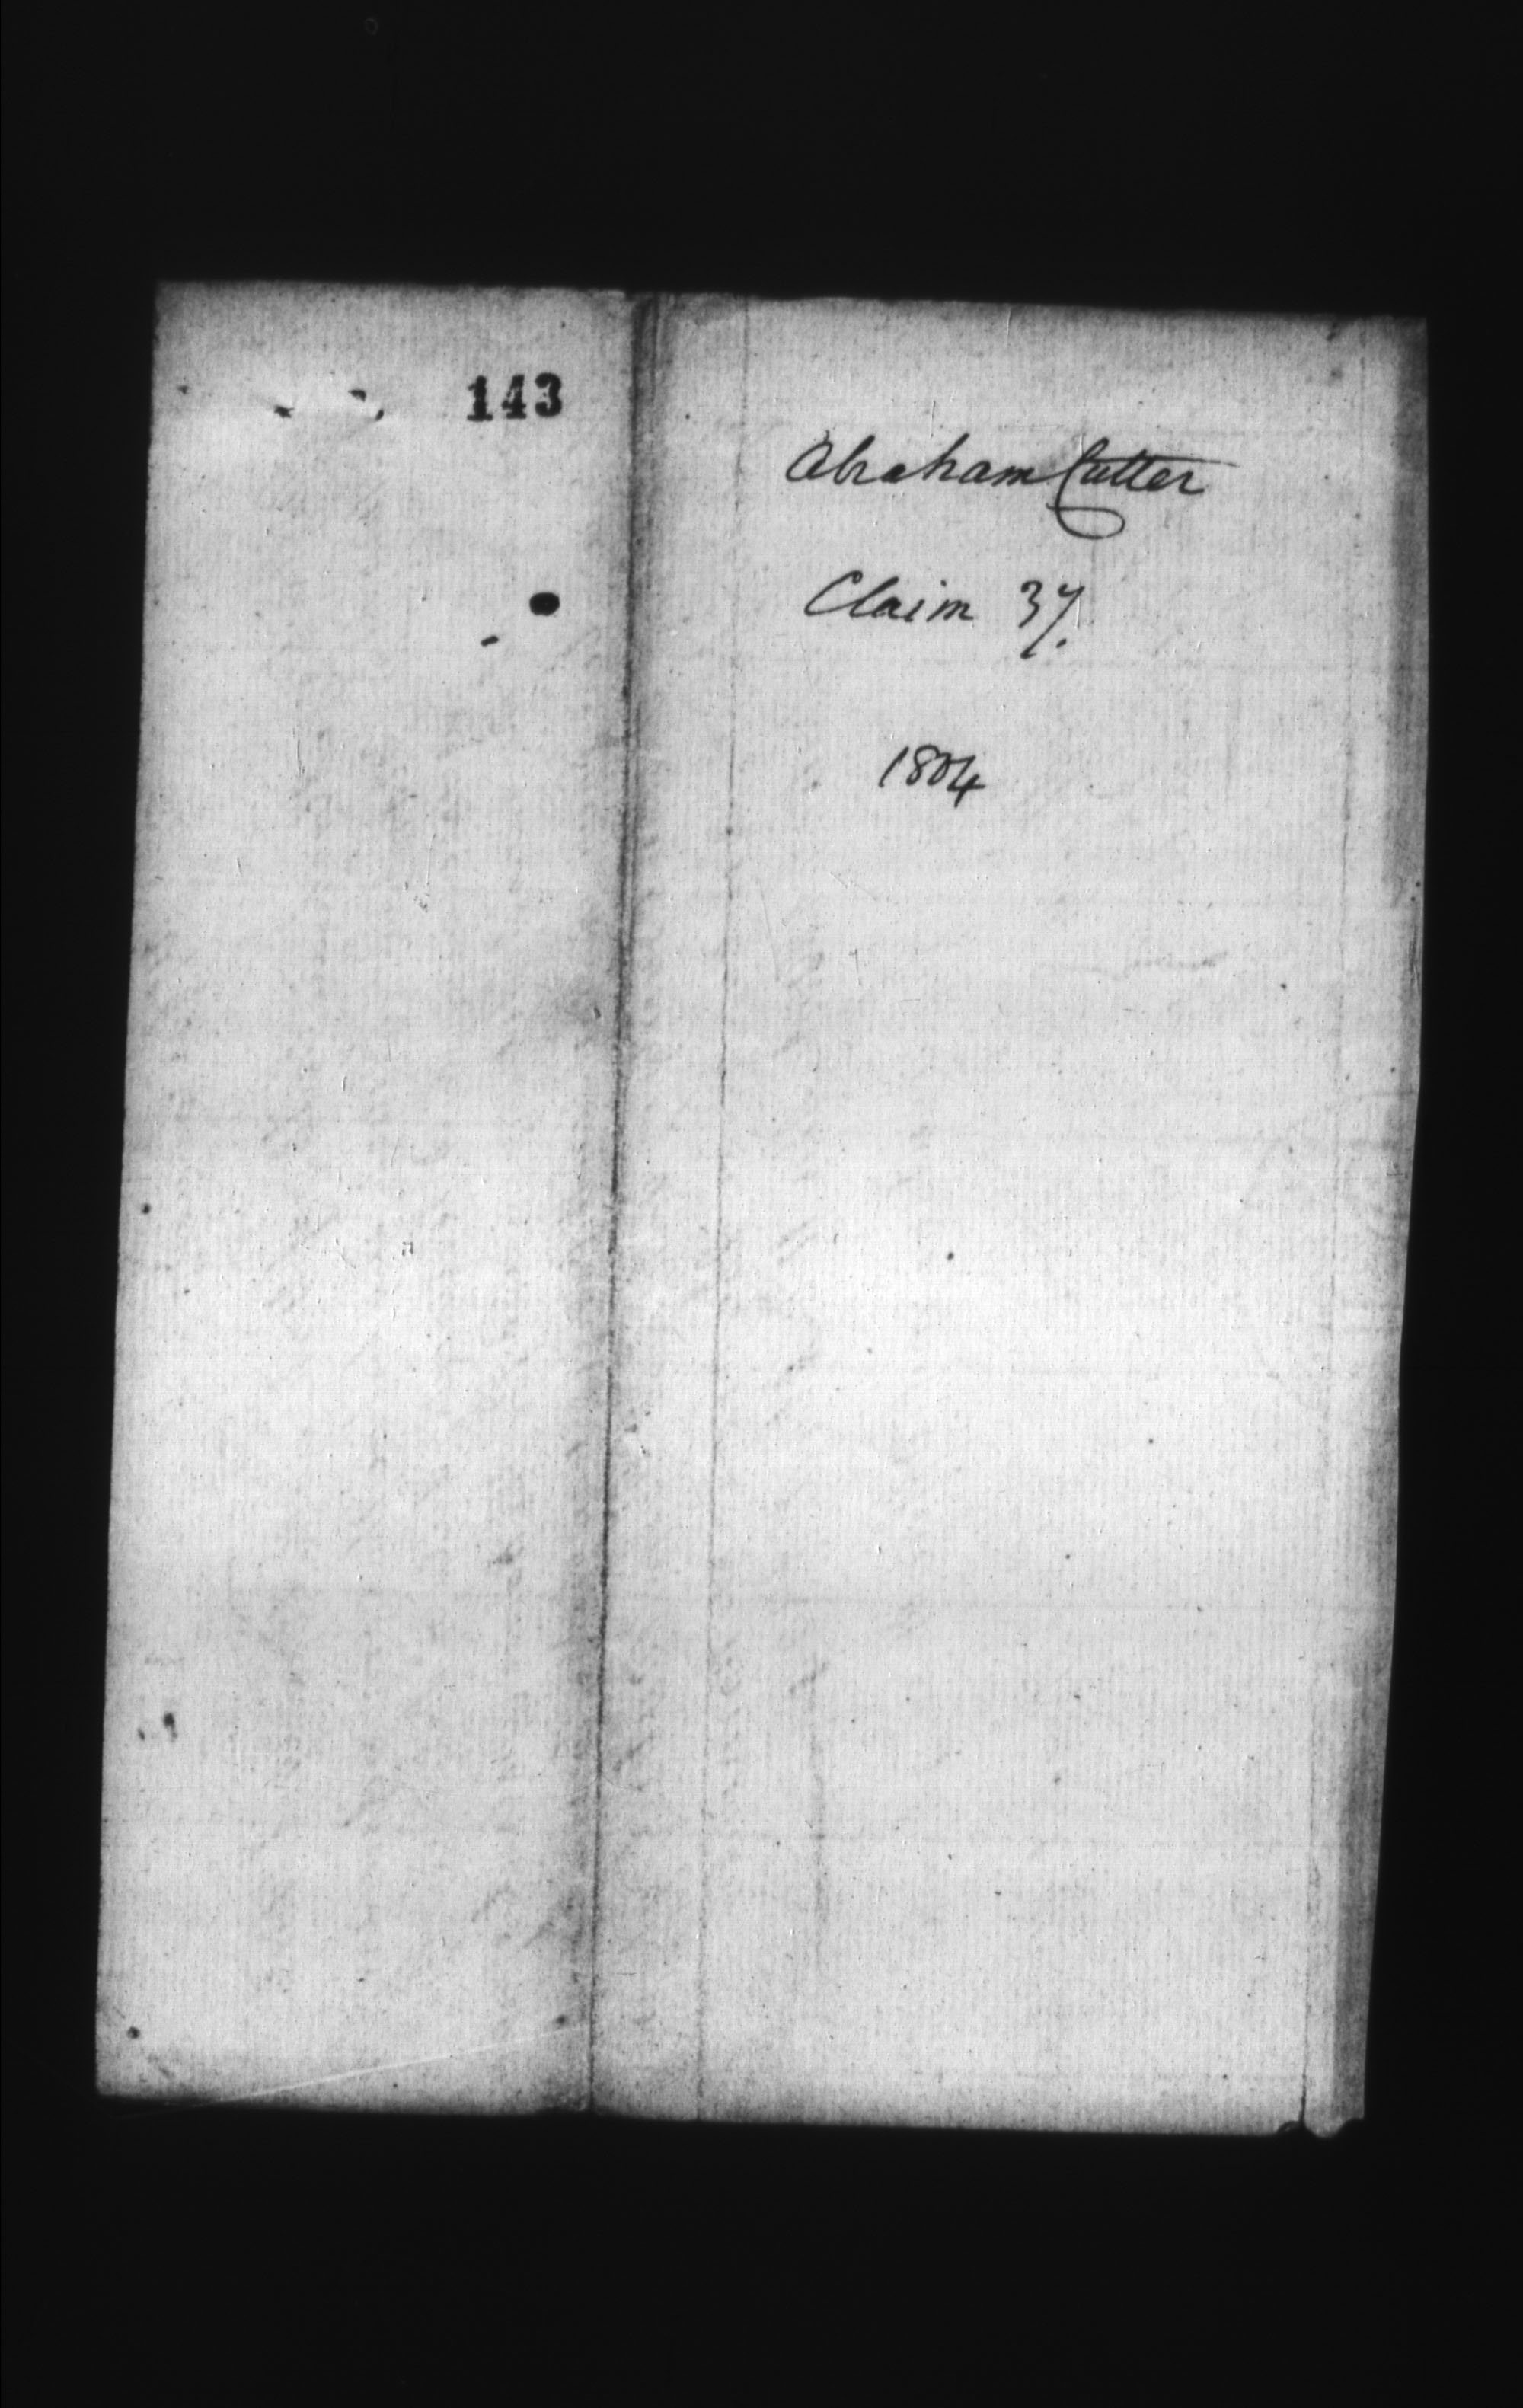 143
Abraham Cutter
Claim 37.
1804